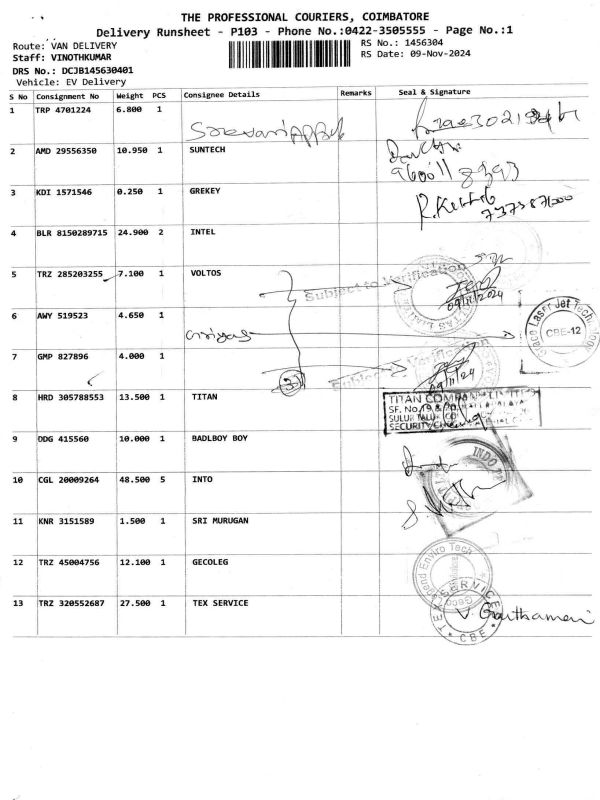 THE PROFESSIONAL COURIERS, COIMBATORE
Delivery Runsheet - P103 - Phone No.:0422-3505555 - Page No.:1
Route: VAN DELIVERY
RS No.: 1456304
Staff: VINOTHKUMAR
RS Date: 09-Nov-2024
DRS No.: DCJB145630401
Vehicle: EV Delivery
S No Consignment No Weight PCS Consignee Details Remarks Seal & Signature
1 TRP 4701224 6.800 1
2 AMD 29556350 10.950 1 SUNTECH
3 KDI 1571546 0.250 1 GREKEY
4 BLR 8150289715 24.900 2 INTEL
5 TRZ 285203255 7.100 1 VOLTOS
Subject to Verification
09/11/24
6 AWY 519523 4.650 1
Space Laser Jet Tech
CBE-12
7 GMP 827896 4.000 1
Subject to Verification
09/11/24
8 HRD 305788553 13.500 1 TITAN
TITAN COMPANY LIMITED
SF. No.
SULUR TALUK
SECURITY
9 DDG 415560 10.000 1 BADLBOY BOY
INDO
10 CGL 20009264 48.500 5 INTO
11 KNR 3151589 1.500 1 SRI MURUGAN
12 TRZ 45004756 12.100 1 GECOLEG
Enviro Tech
13 TRZ 320552687 27.500 1 TEX SERVICE
TEX SERVICE
CBE
V. Gouthameni